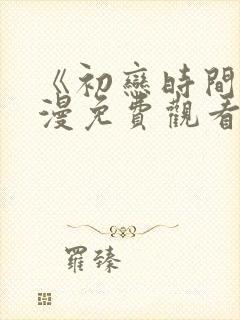 《初戀時間
漫免費觀看
羅臻